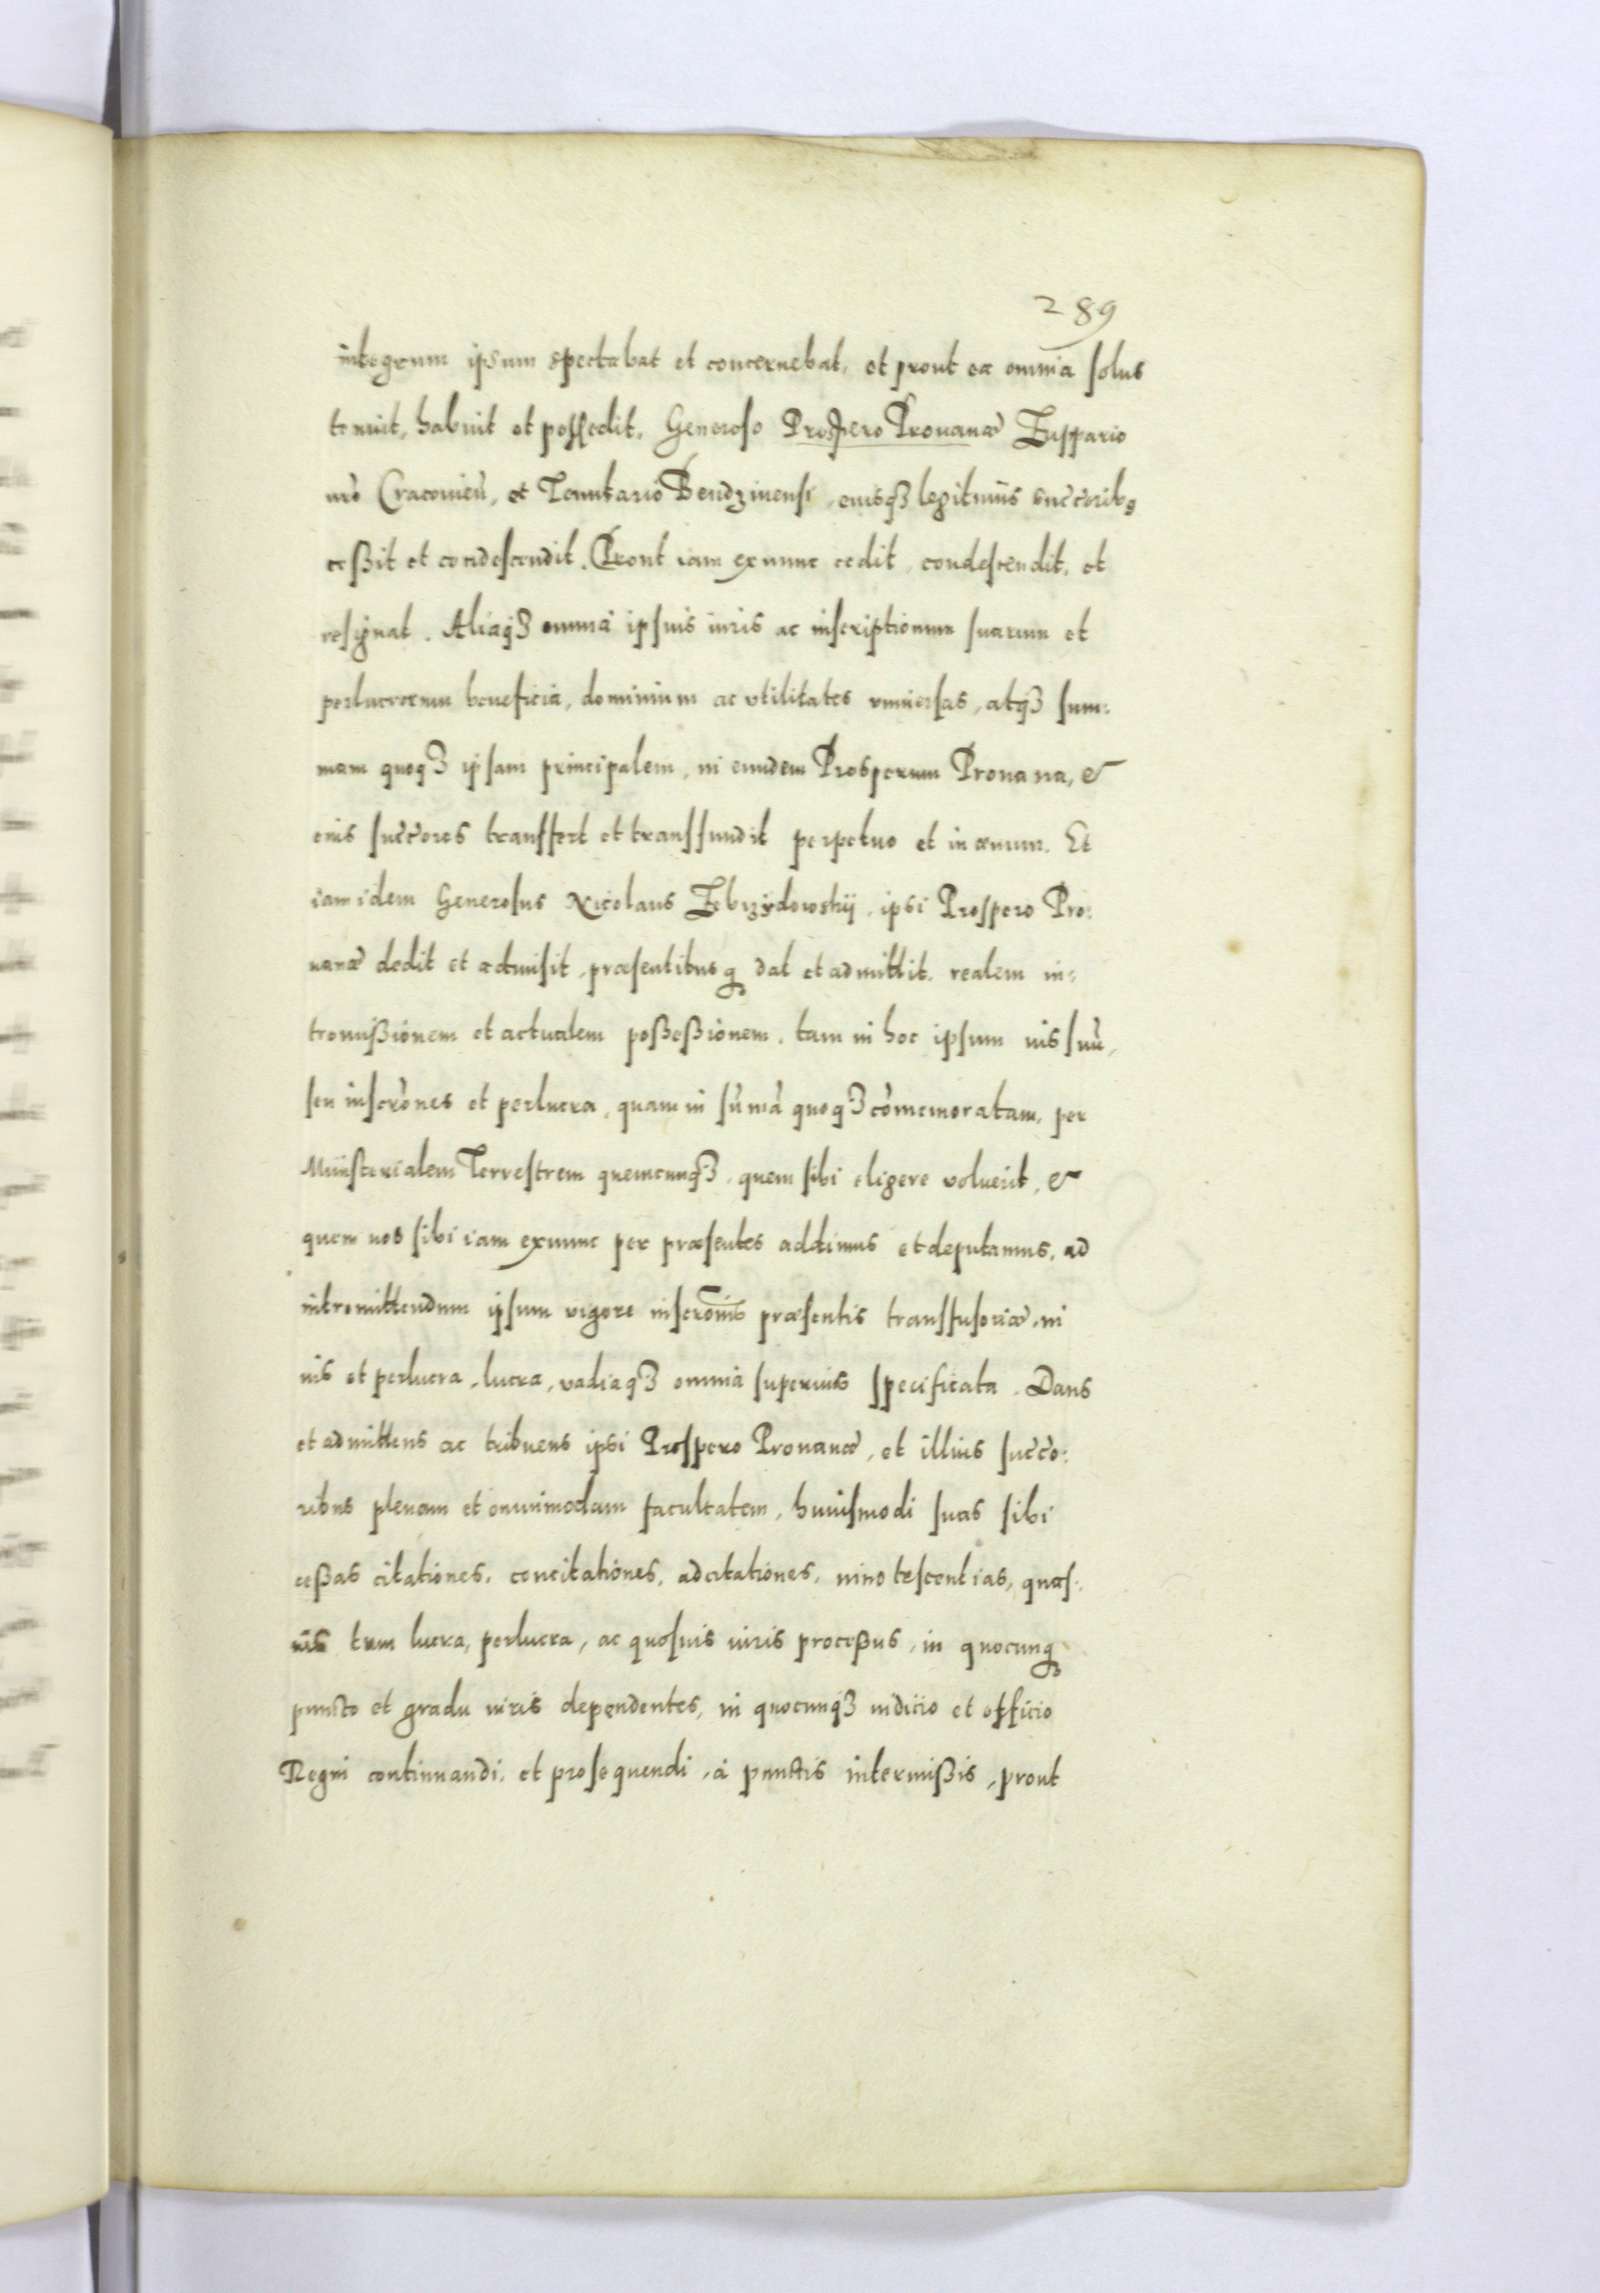 289
integrum ipsum spectabat et concernebat, et prout ea omnia solus
tenuit, habuit et possedit, Generoso Prospero Prouanæ Zuppario
nr̃o Cracovieñ, et Tenutario Bendzinensi, eiusq3 legitimis succ̃orib9
ceßit et condescendit. Prout iam exnunc cedit, condescendit, et
resignat. Aliaq3 omnia ipsius iuris ac inscriptionum suarum et
perlucrorum beneficia, dominium ac vtilitates vniuersas, atq3 sum:
mam quoq3 ipsam principalem, in eundem Prosperum Prouana, &
eius succ̃ores transfert et transfundit perpetuo et in æuum. Et
iam idem Generosus Nicolaus Zebrzÿdowskÿ, ipsi Prospero Pro:
uanæ dedit et admisit, præsentibusq3 dat et admittit, realem in:
tromißionem et actualem poßeßionem, tam in hoc ipsum ius suũ,
seu inscr̃ones et perlucra, quam in sũmã quoq3 cõmemoratam, per
Ministerialem Terrestrem quemcunq3, quem sibi eligere voluerit, &
quem nos sibi iam exnunc per præsentes addimus et deputamus, ad
intromittendum ipsum vigore inscr̃onis præsentis transfusoriæ, in
ius et perlucra, lucra, vadiaq3 omnia superius specificata. Dans
et admittens ac tribuens ipsi Prospero Prouanæ, et illius succ̃o:
ribus plenam et omnimodam facultatem, huiusmodi suas sibi
ceßas citationes, concitationes, adcitationes, innotescentias, quas:
uis tum lucra, perlucra, ac quosuis iuris proceßus, in quocunq3
puncto et gradu iuris dependentes, in quocunq3 iudicio et officio
Regni continuandi, et prosequendi, à punctis intermißis, prout